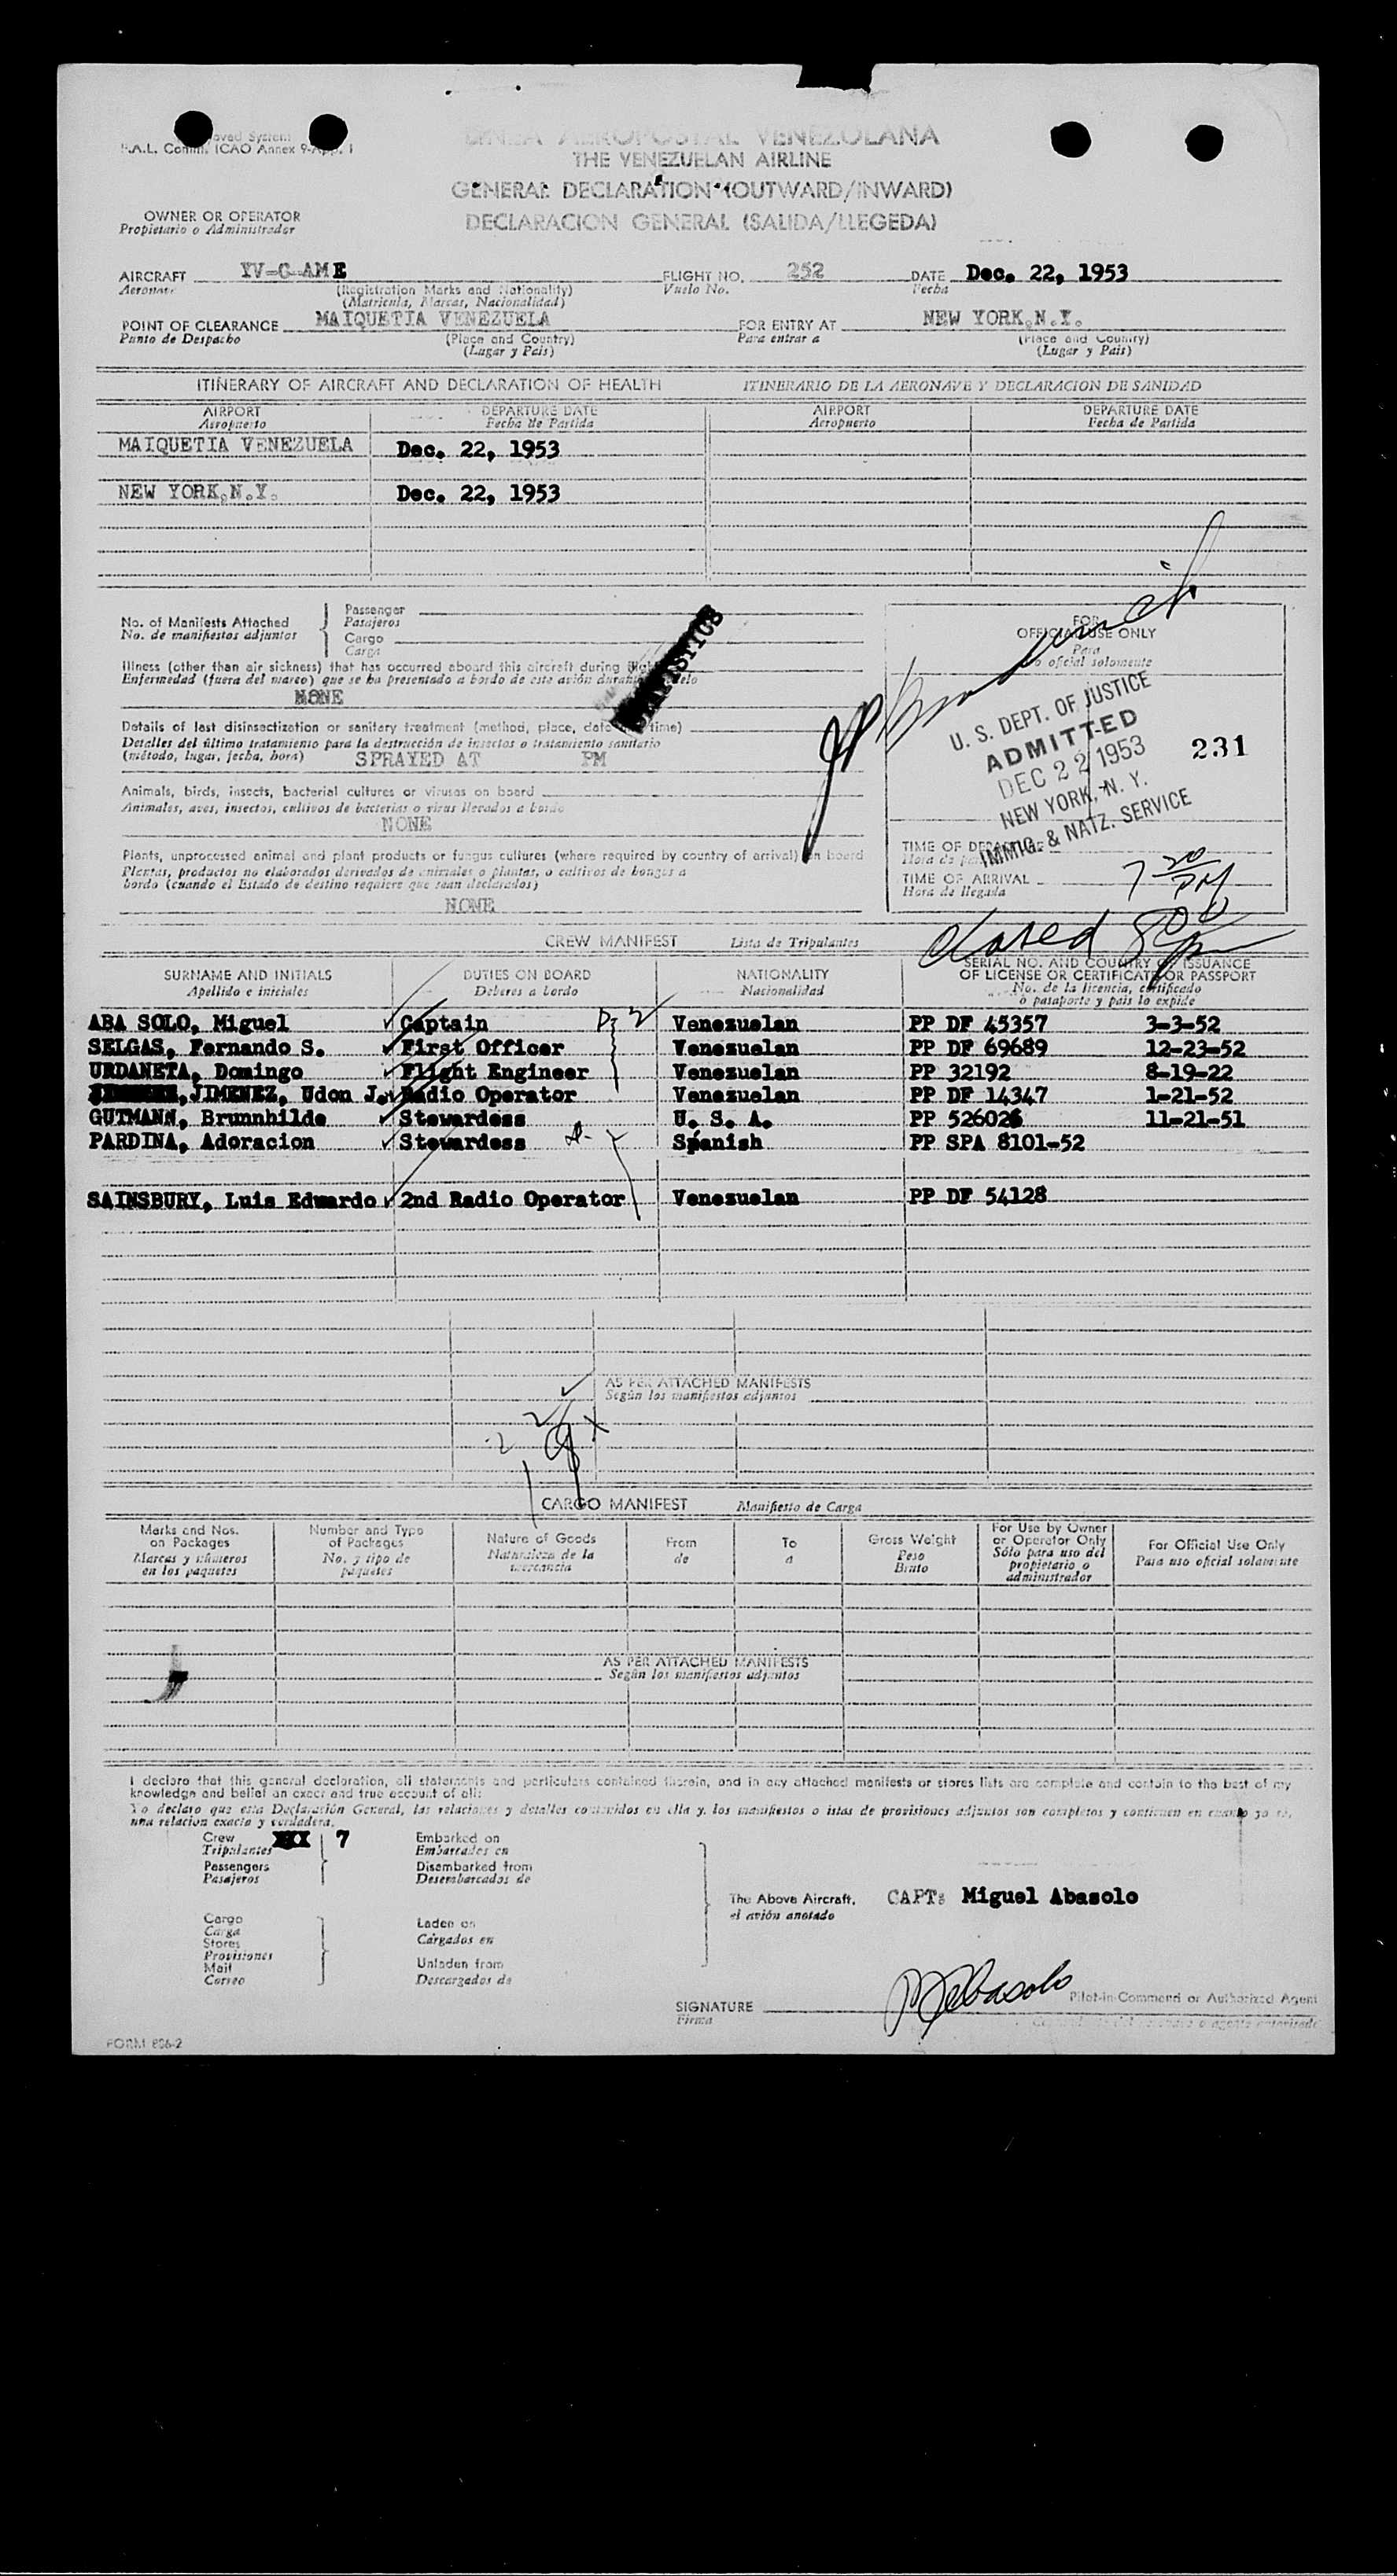 LINEA AEROPOSTAL VENEZOLANA
THE VENEZUELAN AIRLINE
GENERAL DECLARATION (OUTWARD/INWARD)
DECLARACION GENERAL (SALIDA/LLEGEDA)
F.A.L. Comm. ICAO Annex 9-App. 1
OWNER OR OPERATOR
Propietario o Administrador
AIRCRAFT YV-C-AME FLIGHT NO. 252 DATE Dec. 22, 1953
Aeronave (Registration Marks and Nationality) Vuelo No. Fecha
(Matricula, Marcas, Nacionalidad)
POINT OF CLEARANCE MAIQUETIA VENEZUELA FOR ENTRY AT NEW YORK,N.Y.
Punto de Despacho (Place and Country) Para entrar a (Place and Country)
(Lugar y Pais) (Lugar y Pais)
ITINERARY OF AIRCRAFT AND DECLARATION OF HEALTH ITINERARIO DE LA AERONAVE Y DECLARACION DE SANIDAD
AIRPORT DEPARTURE DATE AIRPORT DEPARTURE DATE
Aeropuerto Fecha de Partida Aeropuerto Fecha de Partida
MAIQUETIA VENEZUELA Dec. 22, 1953
NEW YORK,N.Y. Dec. 22, 1953
No. of Manifests Attached
No. de manifiestos adjuntos
Passenger
Pasajeros
Cargo
Carga
Illness (other than air sickness) that has occurred aboard this aircraft during flight
Enfermedad (fuera del mareo) que se ha presentado a bordo de este avión durante vuelo
NONE
STATISTICS
Details of last disinsectization or sanitary treatment (method, place, date, time)
Detalles del último tratamiento para la destrucción de insectos o tratamiento sanitario
(método, lugar, fecha, hora) SPRAYED AT PM
Animals, birds, insects, bacterial cultures or viruses on board
Animales, aves, insectos, cultivos de bacterias o virus llevados a bordo
NONE
Plants, unprocessed animal and plant products or fungus cultures (where required by country of arrival) on board
Plantas, productos no elaborados derivados de animales o plantas, o cultivos de hongos a
bordo (cuando el Estado de destino requiere que sean declarados)
NONE
FOR
OFFICIAL USE ONLY
Para
uso oficial solamente
U. S. DEPT. OF JUSTICE
ADMITTED
DEC 22 1953
NEW YORK, N. Y.
IMMIG. & NATZ. SERVICE
231
TIME OF DEPARTURE
TIME OF ARRIVAL 7 20 PM
Hora de llegada
closed
CREW MANIFEST Lista de Tripulantes
SURNAME AND INITIALS DUTIES ON BOARD NATIONALITY SERIAL NO. AND COUNTRY OF ISSUANCE
OF LICENSE OR CERTIFICATE OR PASSPORT
Apellido e iniciales Deberes a bordo Nacionalidad No. de la licencia, certificado
o pasaporte y pais lo expide
ABA SOLO, Miguel Captain Venezuelan PP DF 45357 3-3-52
SELGAS, Fernando S. First Officer Venezuelan PP DF 69689 12-23-52
URDANETA, Domingo Flight Engineer Venezuelan PP 32192 8-19-22
JIMENEZ, Udon J. Radio Operator Venezuelan PP DF 14347 1-21-52
GUTMANN, Brunnhilde Stewardess U. S. A. PP 526026 11-21-51
PARDINA, Adoracion Stewardess Spanish PP SPA 8101-52
SAINSBURY, Luis Edwardo 2nd Radio Operator Venezuelan PP DF 54128
AS PER ATTACHED MANIFESTS
Según los manifiestos adjuntos
CARGO MANIFEST Manifiesto de Carga
Marks and Nos. on Packages
Marcas y números en los paquetes
Number and Type of Packages
No. y tipo de paquetes
Nature of Goods
Naturaleza de la mercancia
From
de
To
a
Gross Weight
Peso Bruto
For Use by Owner or Operator Only
Sólo para uso del propietario o administrador
For Official Use Only
Para uso oficial solamente
AS PER ATTACHED MANIFESTS
Según los manifiestos adjuntos
I declare that this general declaration, all statements and particulars contained therein, and in any attached manifests or stores lists are complete and contain to the best of my
knowledge and belief an exact and true account of all:
Yo declaro que esta Declaración General, las relaciones y detalles contenidos en ella y los manifiestos o istas de provisiones adjuntos son completos y contienen en cuanto yo sé,
una relacion exacta y verdadera.
Crew 7
Tripulantes
Passengers
Pasajeros
Embarked on
Embarcados en
Disembarked from
Desembarcados de
Cargo
Carga
Stores
Provisiones
Mail
Correo
Laden on
Cargados en
Unladen from
Descargados de
The Above Aircraft. CAPT: Miguel Abasolo
el avión anotado
SIGNATURE MAbasolo Pilot-in-Command or Authorized Agent
Firma
FORM 806-2